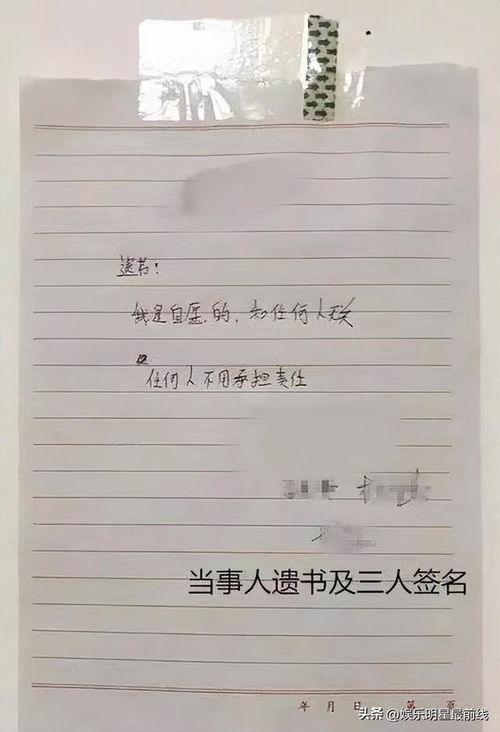 遗书：
我是自愿的，和任何人无关
任何人不用承担责任
当事人遗书及三人签名
年 月 日 第 页
头条 @娱乐明星最前线